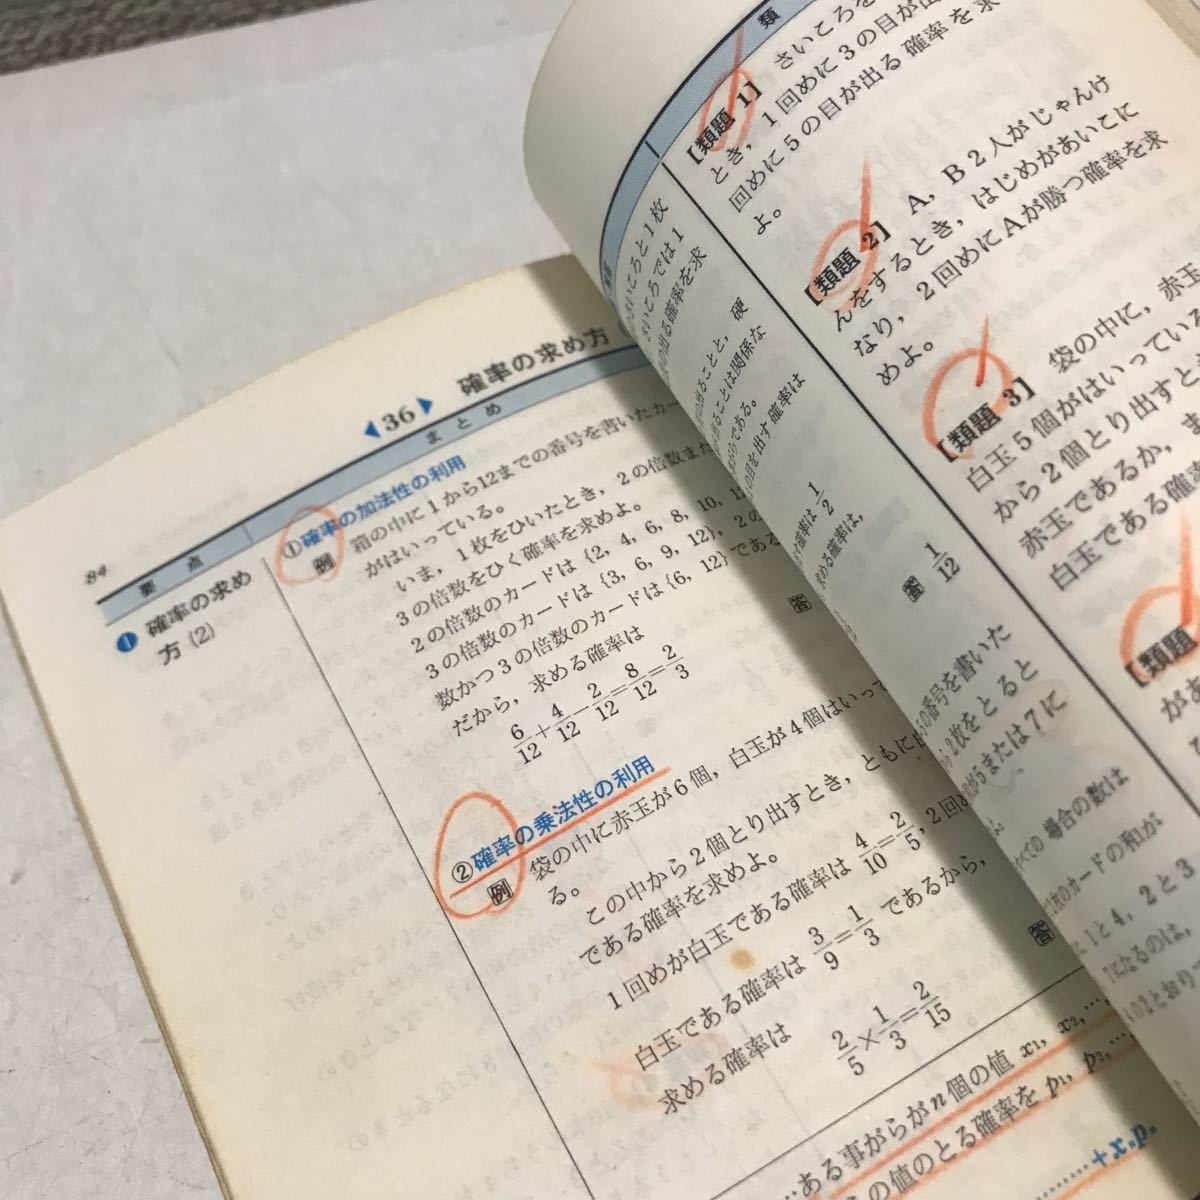 84
◀36▶ 確率の求め方
要 点
ま と め
❶ 確率の求め
方(2)
①確率の加法性の利用
例 箱の中に1から12までの番号を書いたカー
がはいっている。
いま，1枚をひいたとき，2の倍数また
3の倍数をひく確率を求めよ。
2の倍数のカードは{2, 4, 6, 8, 10, 1
3の倍数のカードは{3, 6, 9, 12}，2の
数かつ3の倍数のカードは{6, 12}である
だから，求める確率は
6/12+4/12-2/12=8/12=2/3
答
②確率の乗法性の利用
例 袋の中に赤玉が6個，白玉が4個はいって
る。
この中から2個とり出すとき，ともに
である確率を求めよ。
1回めが白玉である確率は 4/10=2/5，2回
白玉である確率は 3/9=1/3 であるから，
求める確率は
2/5×1/3=2/15
答
ある事がらがn個の値 x₁, x₂,…,
の値のとる確率を p₁, p₂,…,
………+xₙpₙ
さいころと1枚
さいころでは1
の出る確率を求
出ることと，硬
ることは関係な
である。
の目を出す確率は
確率は 1/2
求める確率は，
答 1/12
の番号を書いた
2枚をとると
5または7に
べての場合の数は
枚のカードの和が
1と4，2と3
7になるのは，
の2とおり
類
【類題 1】 さいころを
とき，1回めに3の目が出
回めに5の目が出る確率を求
よ。
【類題 2】 A，B 2人がじゃんけ
んをするとき，はじめがあいこに
なり，2回めにAが勝つ確率を求
めよ。
【類題 3】 袋の中に，赤玉
白玉5個がはいっている
から2個とり出すとき
赤玉であるか，ま
白玉である確率
【類題
があ